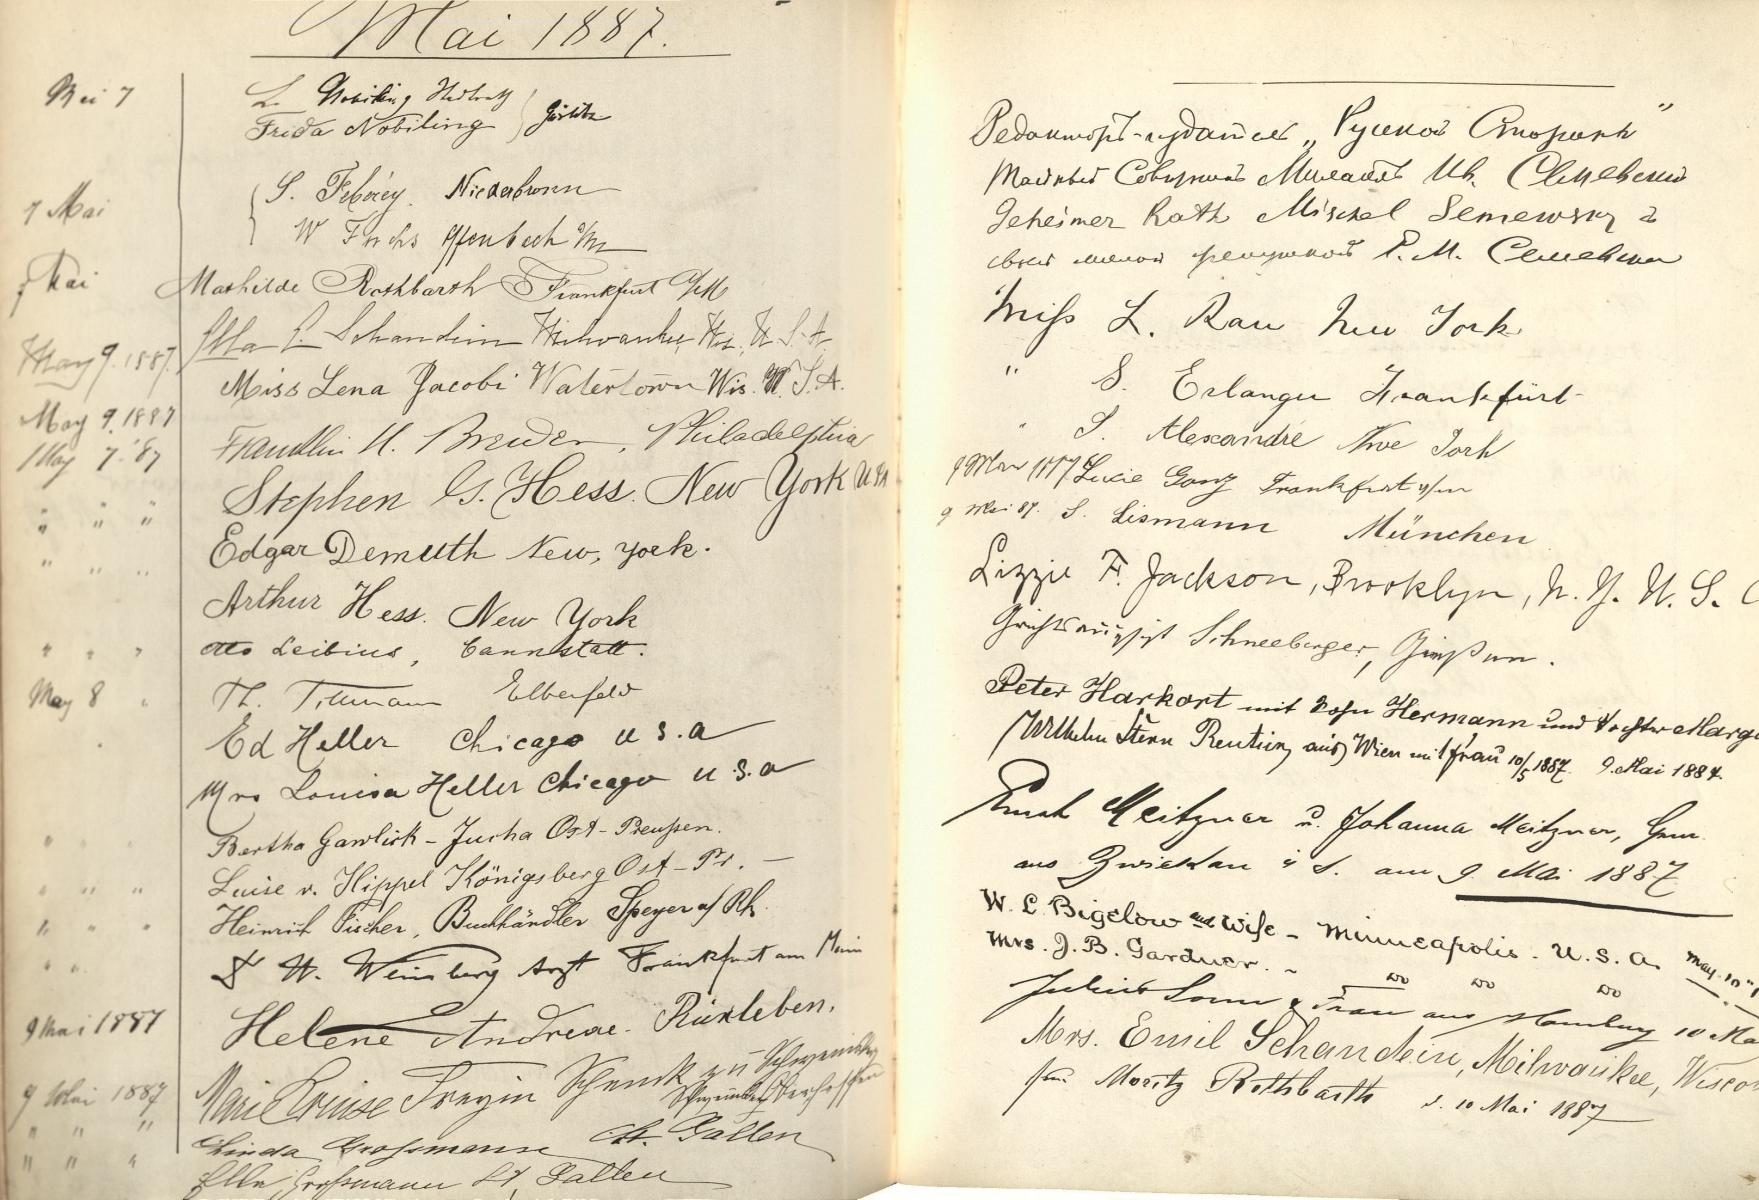 Mai 1887.
Mai 7 L. Nobiling
Frida Nobiling Görlitz
7 Mai S. Niederbronn
W Fuchs Offenbach a/M
7 Mai Mathilde Rothbarth Frankfurt a/M
May 9. 1887. Ella E. Schandein Milwaukee, Wis. U.S.A.
Miss Lena Jacobi Watertown Wis. U.S.A.
May 9. 1887 Franklin H. Philadelphia
May 7. '87 Stephen G. Hess. New York USA
" " " Edgar Demuth New, york.
" " " Arthur Hess. New York
" " " Otto Leibius, Cannstatt.
May 8 " Th. Tillmann Elberfeld
Ed Heller Chicago U S. a
Mrs Louisa Heller Chicago U.S.a
Bertha Gawlick - Jucha Ost-Preußen.
Luise v. Hippel Königsberg Ost-Pr. -
Heinrich Fischer, Buchhändler Speyer a/Rh.
W. Weinberg Arzt Frankfurt am Main
9 Mai 1887 Helene Andreae. Rüxleben.
9 Mai 1887 Marie Louise Freyin Schenk zu Schweinsberg
" " " Linda Grossmann St. Gallen
" " " Ella Grossmann St. Gallen
Редакторъ-издатель „Русской Старины"
Тайный Совѣтникъ Михаилъ Ив. Семевскій
Geheimer Rath Mischel Semewsky
Е. М. Семевски
Miss L. Rau New York
" S. Erlanger Frankfurt
" S. Alexandre New York
9 Mai 1887 Lucie Ganz Frankfurt a/m
9 Mai 87. S. Lismann München
Lizzie F. Jackson, Brooklyn, N. Y. U. S.
Schneeberger, Gießen.
Peter Harkort mit Sohn Hermann und Tochter
Wilhelm Stern Rentier, aus Wien mit Frau 10/5 1887. 9. Mai 1887.
Ernst Meitzner u. Johanna Meitzner,
aus Zwickau i S. am 9 Mai 1887
W. L. Bigelow and Wife - Minneapolis. U.S.A. May 10
Mrs. J. B. Gardner. - do do do
Julius Sonn & Frau aus Hamburg 10
Mrs. Emil Schandein, Milwaukee,
Moritz Rothbarth d. 10 Mai 1887